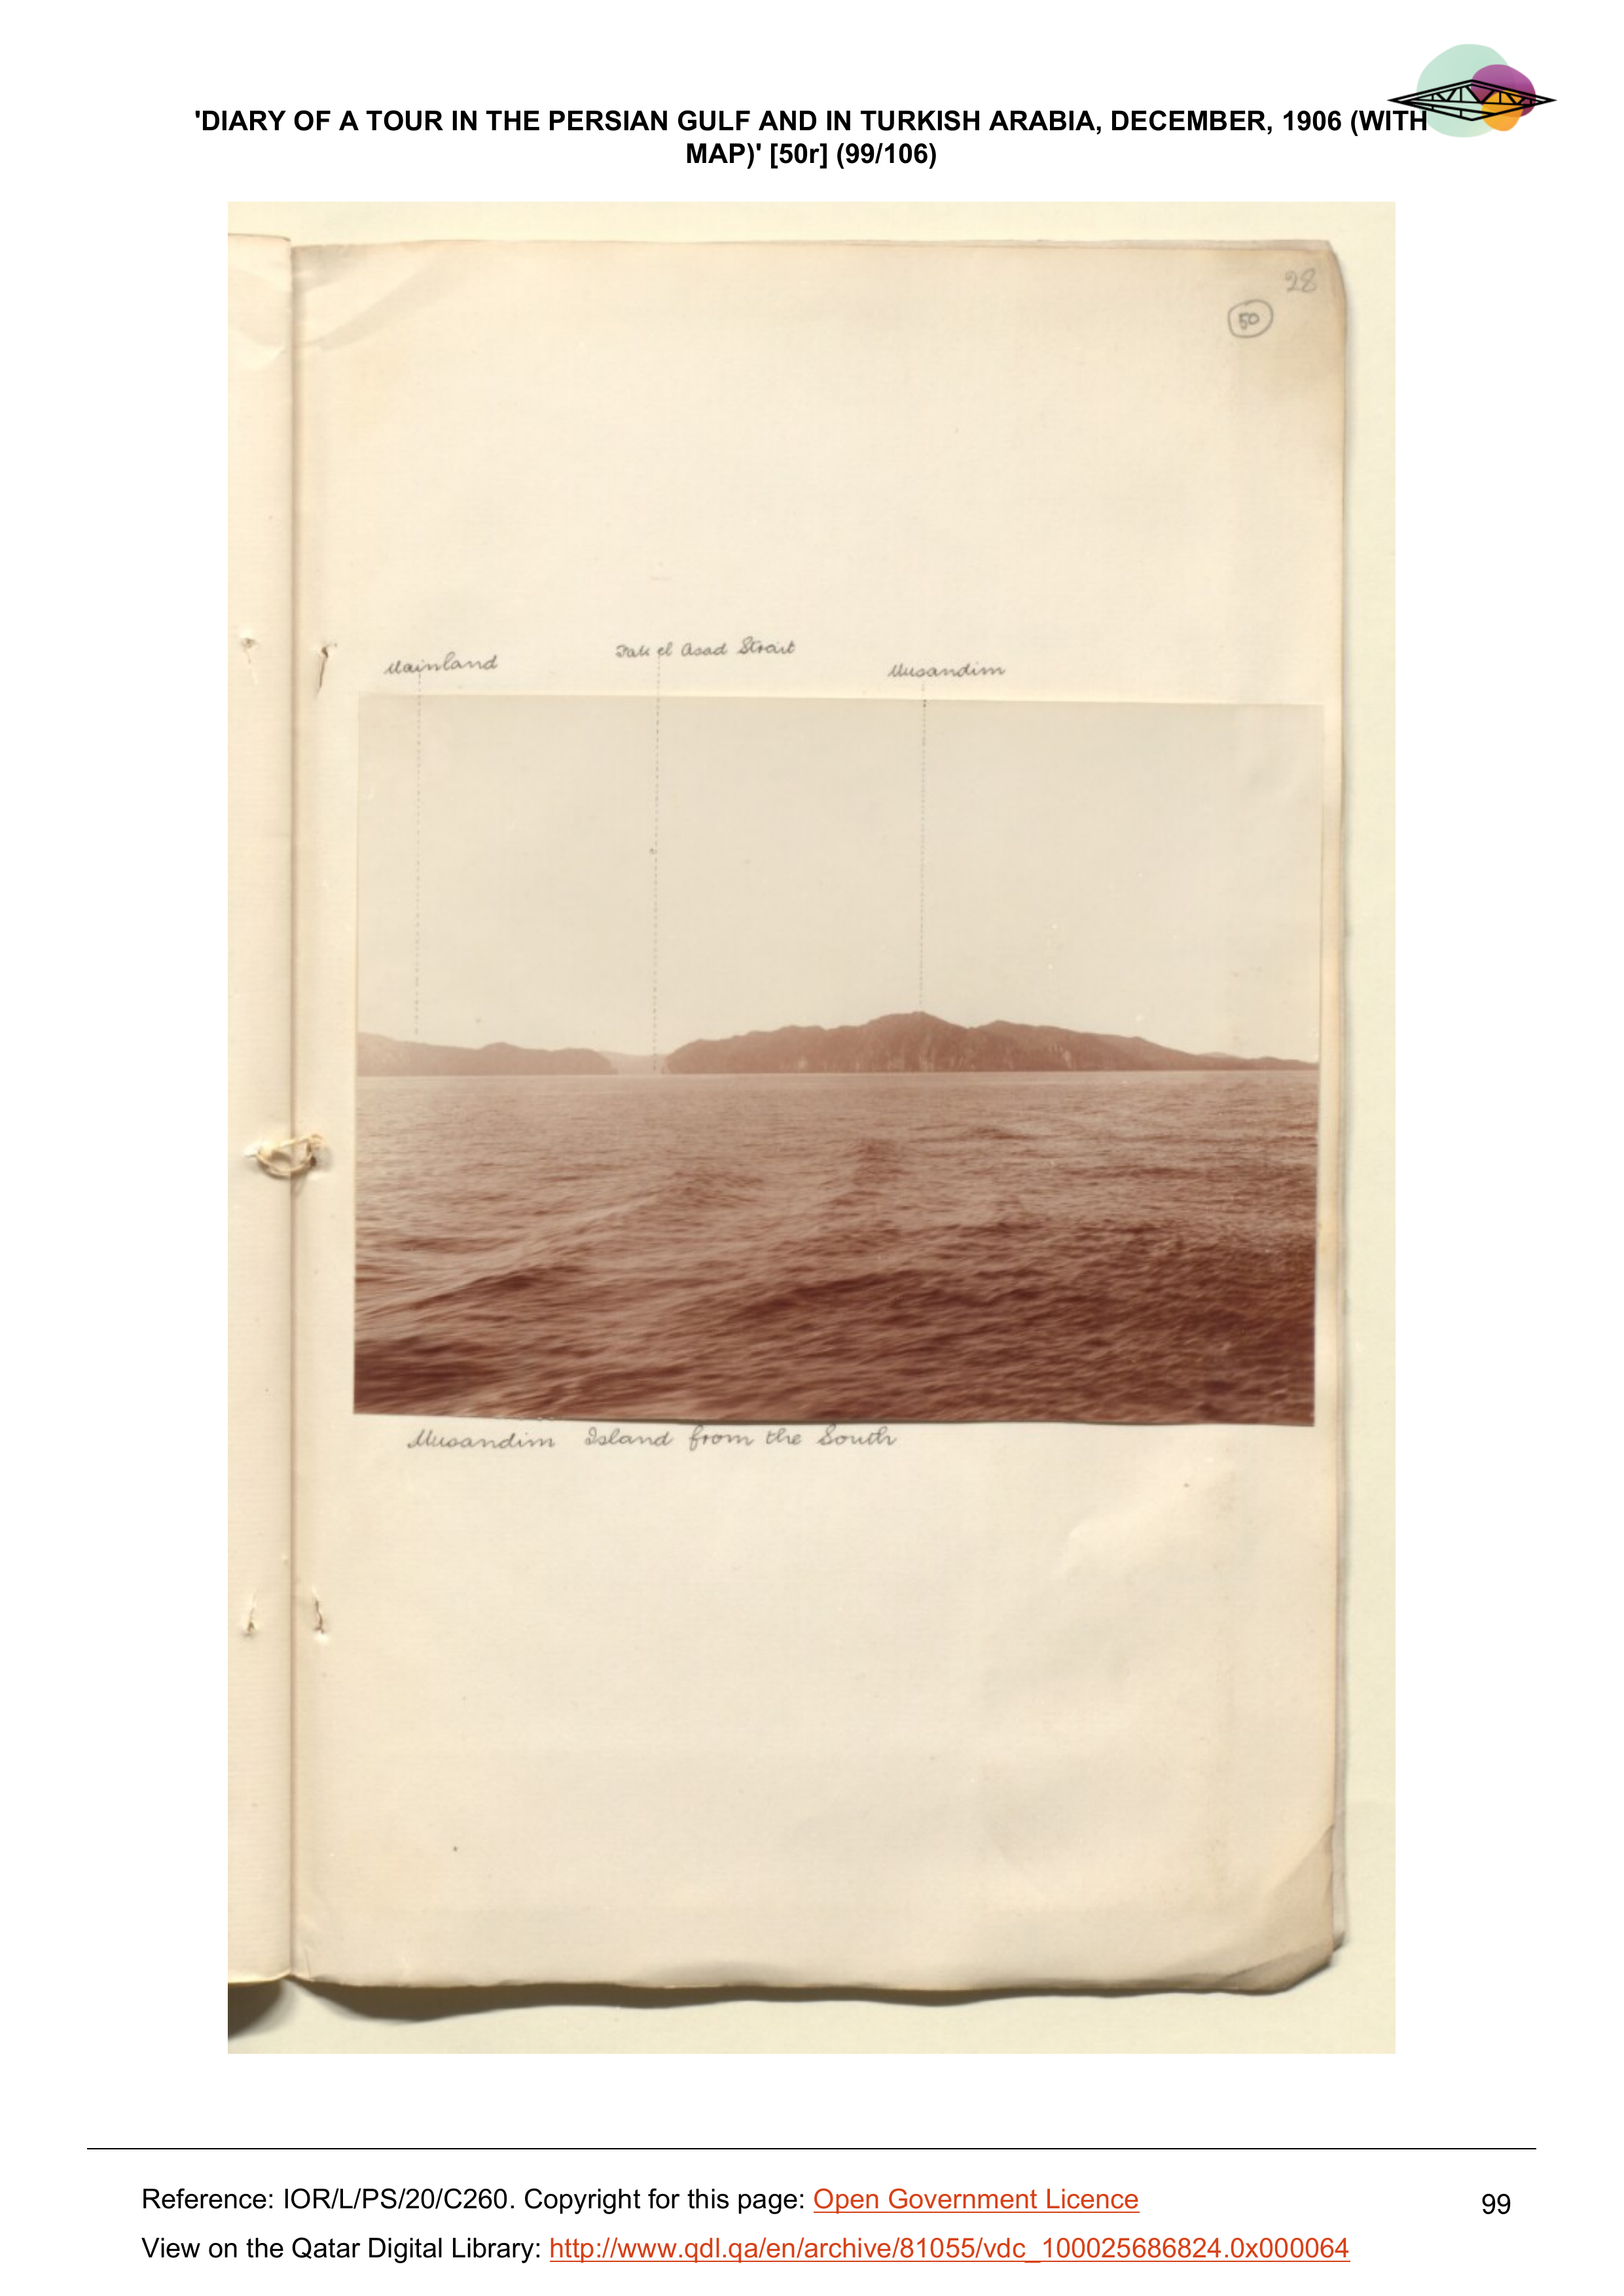 'DIARY OF A TOUR IN THE PERSIAN GULF AND IN TURKISH ARABIA, DECEMBER, 1906 (WITH
MAP)' [50r] (99/106)
28
50
Mainland
Fak el Asad Strait
Musandim
Musandim Island from the South
Reference: IOR/L/PS/20/C260. Copyright for this page: Open Government Licence
99
View on the Qatar Digital Library: http://www.qdl.qa/en/archive/81055/vdc_100025686824.0x000064